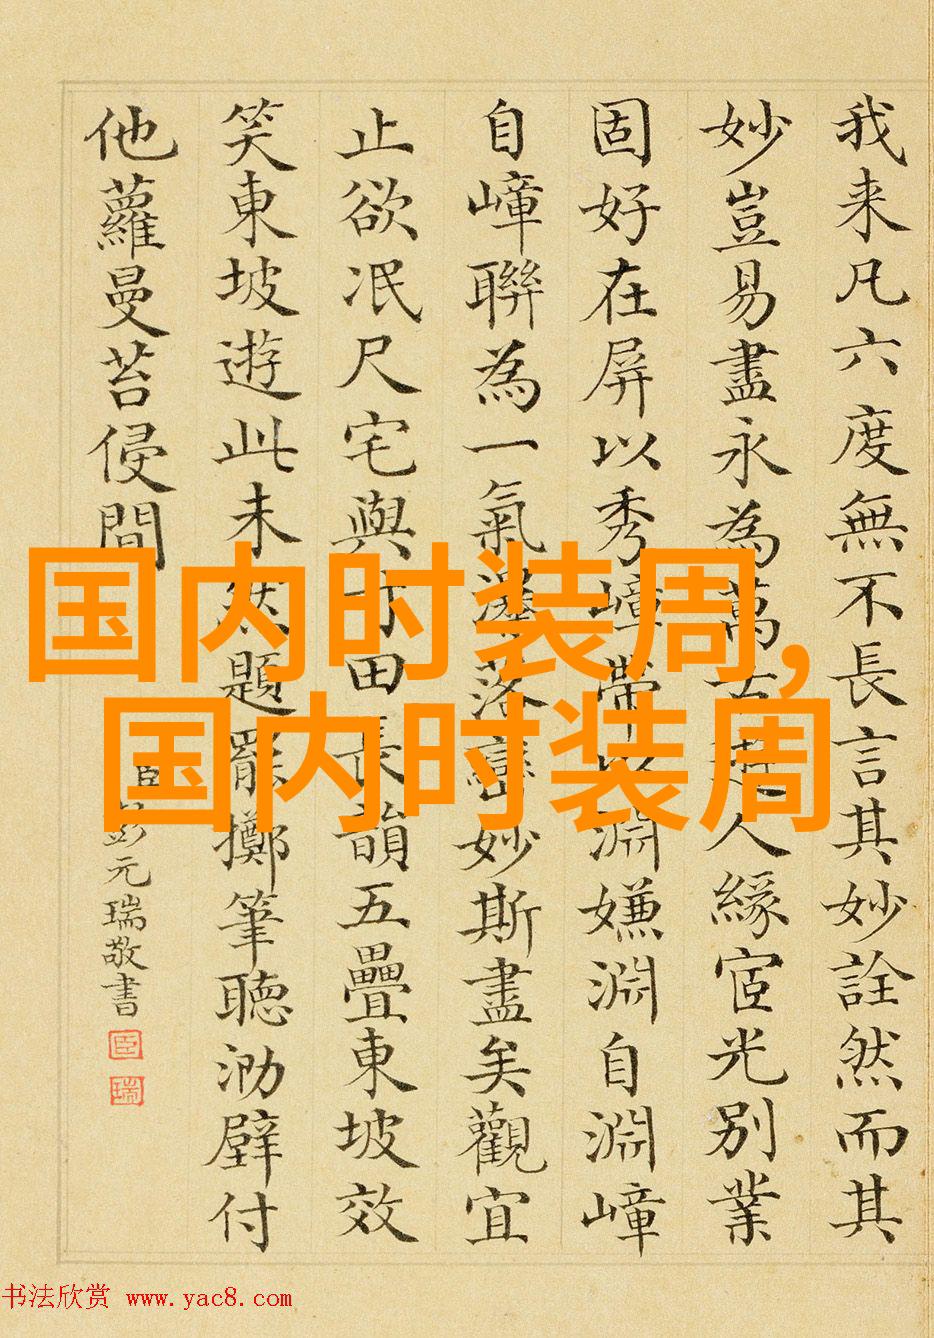 我来凡六度無不長言其妙詮然而其
妙豈易盡永為萬古人緣宧光別業
固好在屏以秀嶂帶以淵嫌淵自淵嶂
自嶂聯為一氣灑落巒妙斯盡矣觀宜
止欲泯尺宅與寸田長韻五疊東坡效
笑東坡遊此未然題罷擲筆聽泐壁付
他蘿曼苔侵間
臣彭元瑞敬書
臣
瑞
国内时装周,
国内时装周
书法欣赏 www.yac8.com